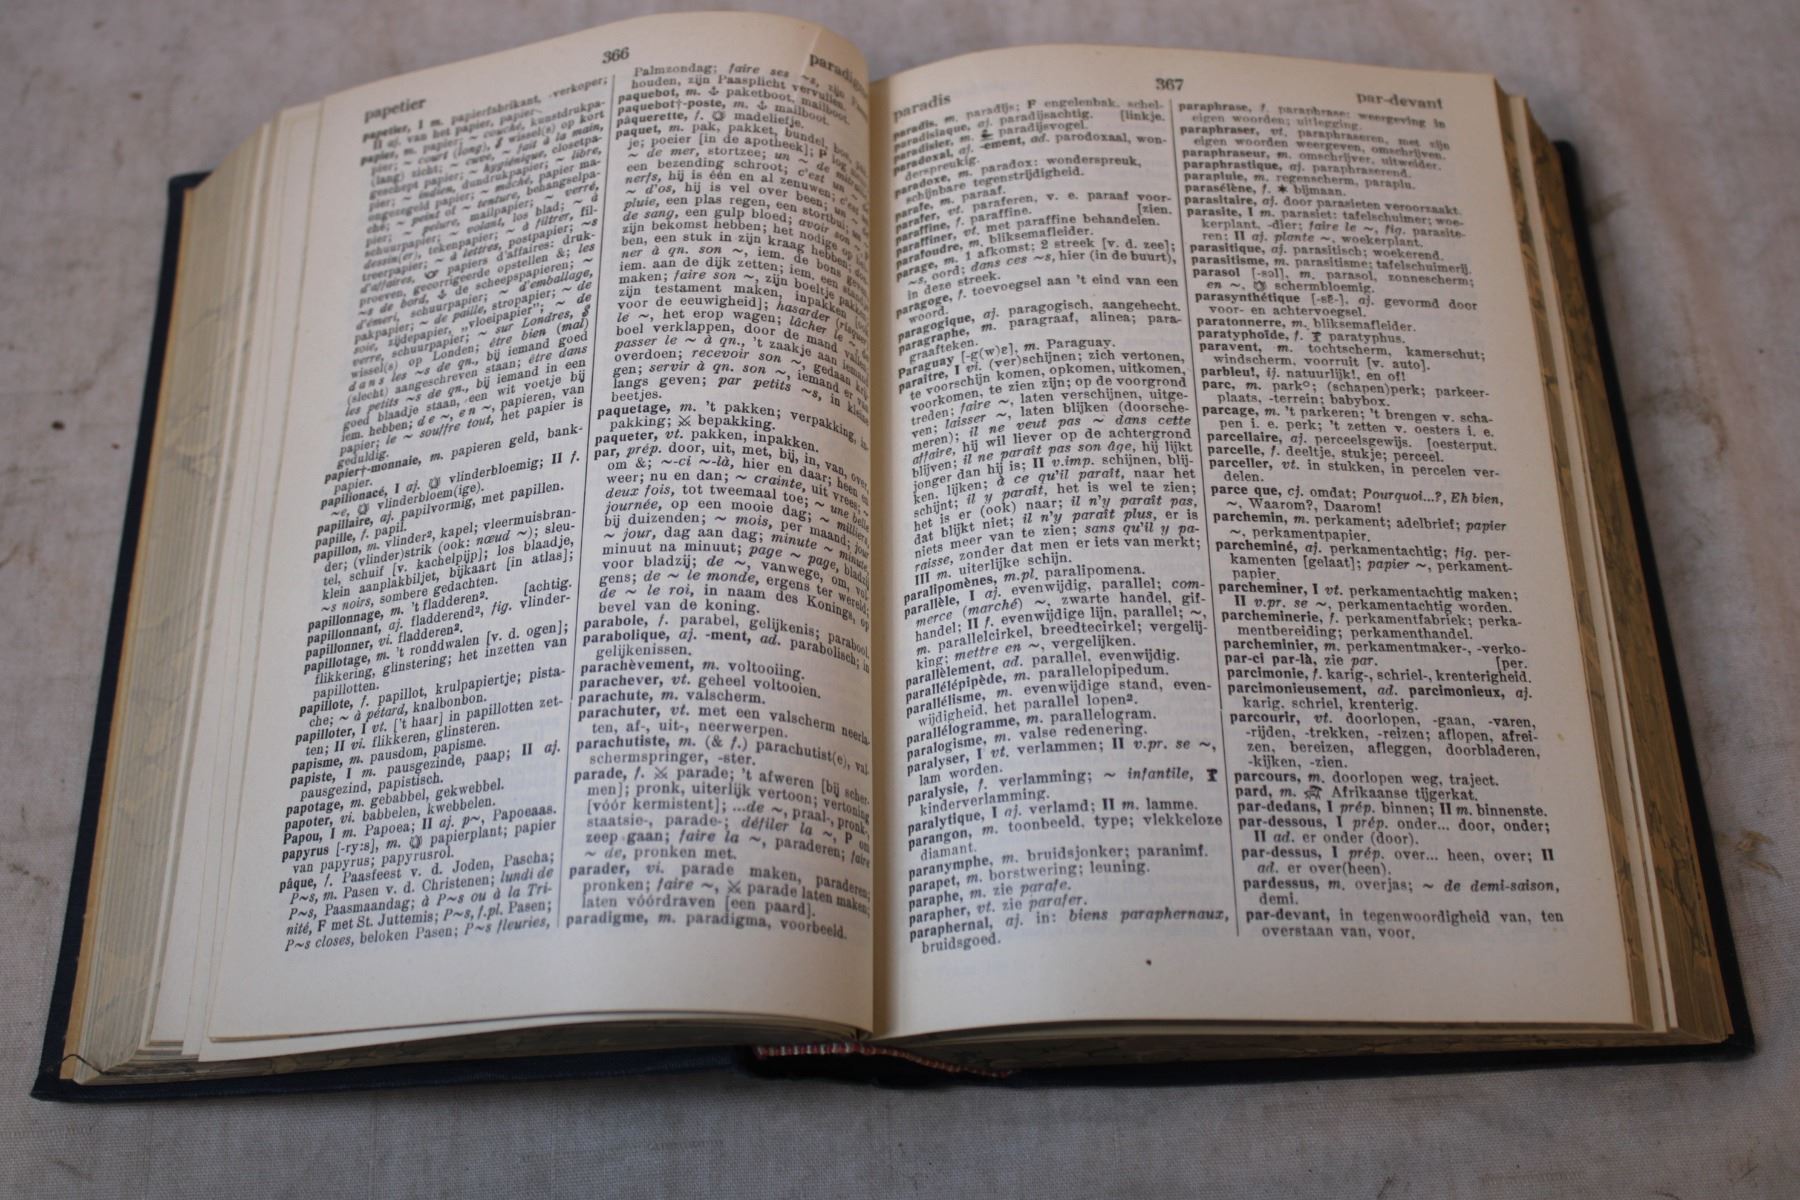 366
papetier
papetier, I m. papierfabrikant, -verkoper;
II aj. van het papier, papier-
papier, m. papier; ~ couché, kunstdrukpa-
pier; ~ court (long), wissel(s) op kort
(lang) zicht; ~ cuve, ~ fait à la main,
geschept papier; ~ hygiénique, closetpa-
pier; ~ indien, dundrukpapier; ~ libre,
ongezegeld papier; ~ mâché, papier ma-
ché; ~ peint of ~ tenture, behangselpa-
pier; ~ pelure, mailpapier; ~ verré,
schuurpapier; ~ volant, los blad; ~ à
dessin(er), tekenpapier; ~ à filtrer, fil-
treerpapier; ~ à lettres, postpapier; ~s
d'affaires, papiers d'affaires: druk-
proeven, gecorrigeerde opstellen &; les
~s de bord, de scheepspapieren; ~
d'émeri, schuurpapier; ~ d'emballage,
pakpapier; ~ de paille, stropapier; ~ de
soie, zijdepapier, „vloeipapier”; ~ de
verre, schuurpapier; ~ sur Londres,
wissel(s) op Londen; être bien (mal)
dans les ~s de qn., bij iemand goed
(slecht) aangeschreven staan; être dans
les petits ~s de qn., bij iemand in een
goed blaadje staan, een wit voetje bij
iem. hebben; de ~, en ~, papieren, van
papier; le ~ souffre tout, het papier is
geduldig.
papier†-monnaie, m. papieren geld, bank-
papier.
papilionacé, I aj. vlinderbloemig; II f.
~e, vlinderbloem(ige).
papillaire, aj. papilvormig, met papillen.
papille, f. papil.
papillon, m. vlinder², kapel; vleermuisbran-
der; (vlinder)strik (ook: nœud ~); sleu-
tel, schuif [v. kachelpijp]; los blaadje,
klein aanplakbiljet, bijkaart [in atlas];
~s noirs, sombere gedachten. [achtig.
papillonnage, m. 't fladderen².
papillonnant, aj. fladderend², fig. vlinder-
papillonner, vi. fladderen².
papillotage, m. 't ronddwalen [v. d. ogen];
flikkering, glinstering; het inzetten van
papillotten.
papillote, f. papillot, krulpapiertje; pista-
che; ~ à pétard, knalbonbon.
papilloter, I vt. ['t haar] in papillotten zet-
ten; II vi. flikkeren, glinsteren.
papisme, m. pausdom, papisme.
papiste, I m. pausgezinde, paap; II aj.
pausgezind, papistisch.
papotage, m. gebabbel, gekwebbel.
papoter, vi. babbelen, kwebbelen.
Papou, I m. Papoea; II aj. p~, Papoeaas.
papyrus [-ry:s], m. papierplant; papier
van papyrus; papyrusrol.
pâque, f. Paasfeest v. d. Joden, Pascha;
P~s, m. Pasen v. d. Christenen; lundi de
P~s, Paasmaandag; à P~s ou à la Tri-
nité, F met St. Juttemis; P~s, f.pl. Pasen;
P~s closes, beloken Pasen; P~s fleuries,
Palmzondag; faire ses ~s, zijn
houden, zijn Paasplicht vervullen.
paquebot, m. paketboot, mailboot.
paquebot†-poste, m. mailboot.
pâquerette, f. madeliefje.
paquet, m. pak, pakket, bundel,
je; poeier [in de apotheek]; P
~ de mer, stortzee; un ~ de
een bezending schroot; c'est un
nerfs, hij is één en al zenuwen; c'est
~ d'os, hij is vel over been; un ~
pluie, een plas regen, een stortbui;
de sang, een gulp bloed; avoir son
zijn bekomst hebben; het nodige op
ben, een stuk in zijn kraag hebben;
ner à qn. son ~, iem. de bons geven,
iem. aan de dijk zetten; iem. een
maken; faire son ~, zijn boeltje pakken,
zijn testament maken, inpakken [ook
voor de eeuwigheid]; hasarder (risquer)
le ~, het erop wagen; lâcher le ~, de
boel verklappen, door de mand vallen;
passer le ~ à qn., 't zaakje aan iemand
overdoen; recevoir son ~, gedaan
gen; servir à qn. son ~, iemand er van
langs geven; par petits ~s, in kleine
beetjes.
paquetage, m. 't pakken; verpakking, in-
pakking; bepakking.
paqueter, vt. pakken, inpakken.
par, prép. door, uit, met, bij, in, van, over,
om &; ~-ci ~-là, hier en daar; heen en
weer; nu en dan; ~ crainte, uit vrees; ~
deux fois, tot tweemaal toe; ~ une belle
journée, op een mooie dag; ~ milliers,
bij duizenden; ~ mois, per maand; jour
~ jour, dag aan dag; minute ~ minute,
minuut na minuut; page ~ page, bladzij
voor bladzij; de ~, vanwege, om, vol-
gens; de ~ le monde, ergens ter wereld;
de ~ le roi, in naam des Konings, op
bevel van de koning.
parabole, f. parabel, gelijkenis; parabool.
parabolique, aj. -ment, ad. parabolisch; in
gelijkenissen.
parachèvement, m. voltooiing.
parachever, vt. geheel voltooien.
parachute, m. valscherm.
parachuter, vt. met een valscherm neerla-
ten, af-, uit-, neerwerpen.
parachutiste, m. (& f.) parachutist(e), val-
schermspringer, -ster.
parade, f. parade; 't afweren [bij scher-
men]; pronk, uiterlijk vertoon; vertoning
[vóór kermistent]; ...de ~, praal-, pronk-,
staatsie-, parade-; défiler la ~, P om
zeep gaan; faire la ~, paraderen; faire
~ de, pronken met.
parader, vi. parade maken, paraderen;
pronken; faire ~, parade laten maken;
laten vóórdraven [een paard].
paradigme, m. paradigma, voorbeeld.
paradis
367
par-devant
paradis, m. paradijs; F engelenbak, schel-
paradisiaque, aj. paradijsachtig. [linkje.
paradisier, m. paradijsvogel.
paradoxal, aj. -ement, ad. parodoxaal, won-
derspreukig.
paradoxe, m. paradox: wonderspreuk,
schijnbare tegenstrijdigheid.
parafe, m. paraaf.
parafer, vt. paraferen, v. e. paraaf voor-
paraffine, f. paraffine. [zien.
paraffiner, vt. met paraffine behandelen.
parafoudre, m. bliksemafleider.
parage, m. 1 afkomst; 2 streek [v. d. zee];
~s, oord; dans ces ~s, hier (in de buurt),
in deze streek.
paragoge, f. toevoegsel aan 't eind van een
woord.
paragogique, aj. paragogisch, aangehecht.
paragraphe, m. paragraaf, alinea; para-
graafteken.
Paraguay [-g(w)ɛ], m. Paraguay.
paraître, I vi. (ver)schijnen; zich vertonen,
te voorschijn komen, opkomen, uitkomen,
voorkomen, te zien zijn; op de voorgrond
treden; faire ~, laten verschijnen, uitge-
ven; laisser ~, laten blijken (doorsche-
meren); il ne veut pas ~ dans cette
affaire, hij wil liever op de achtergrond
blijven; il ne paraît pas son âge, hij lijkt
jonger dan hij is; II v.imp. schijnen, blij-
ken, lijken; à ce qu'il paraît, naar het
schijnt; il y paraît, het is wel te zien;
het is er (ook) naar; il n'y paraît pas,
dat blijkt niet; il n'y paraît plus, er is
niets meer van te zien; sans qu'il y pa-
raisse, zonder dat men er iets van merkt;
III m. uiterlijke schijn.
paralipomènes, m.pl. paralipomena.
parallèle, I aj. evenwijdig, parallel; com-
merce (marché) ~, zwarte handel, gif-
handel; II f. evenwijdige lijn, parallel; ~,
m. parallelcirkel, breedtecirkel; vergelij-
king; mettre en ~, vergelijken.
parallèlement, ad. parallel, evenwijdig.
parallélépipède, m. parallelopipedum.
parallélisme, m. evenwijdige stand, even-
wijdigheid, het parallel lopen².
parallélogramme, m. parallelogram.
paralogisme, m. valse redenering.
paralyser, I vt. verlammen; II v.pr. se ~,
lam worden.
paralysie, f. verlamming; ~ infantile,
kinderverlamming.
paralytique, I aj. verlamd; II m. lamme.
parangon, m. toonbeeld, type; vlekkeloze
diamant.
paranymphe, m. bruidsjonker; paranimf.
parapet, m. borstwering; leuning.
paraphe, m. zie parafe.
parapher, vt. zie parafer.
paraphernal, aj. in: biens paraphernaux,
bruidsgoed.
paraphrase, f. paraphrase: weergeving in
eigen woorden; uitlegging.
paraphraser, vt. paraphraseren, met zijn
eigen woorden weergeven, omschrijven.
paraphraseur, m. omschrijver, uitweider.
paraphrastique, aj. paraphraserend.
parapluie, m. regenscherm, paraplu.
parasélène, f. bijmaan.
parasitaire, aj. door parasieten veroorzaakt.
parasite, I m. parasiet: tafelschuimer; woe-
kerplant, -dier; faire le ~, fig. parasite-
ren; II aj. plante ~, woekerplant.
parasitique, aj. parasitisch; woekerend.
parasitisme, m. parasitisme; tafelschuimerij.
parasol [-sɔl], m. parasol, zonnescherm;
en ~, schermbloemig.
parasynthétique [-sɛ̃-], aj. gevormd door
voor- en achtervoegsel.
paratonnerre, m. bliksemafleider.
paratyphoïde, f. paratyphus.
paravent, m. tochtscherm, kamerschut;
windscherm, voorruit [v. auto].
parbleu!, ij. natuurlijk!, en of!
parc, m. park°; (schapen)perk; parkeer-
plaats, -terrein; babybox.
parcage, m. 't parkeren; 't brengen v. scha-
pen i. e. perk; 't zetten v. oesters i. e.
parcellaire, aj. perceelsgewijs. [oesterput.
parcelle, f. deeltje, stukje; perceel.
parceller, vt. in stukken, in percelen ver-
delen.
parce que, cj. omdat; Pourquoi...?, Eh bien,
~, Waarom?, Daarom!
parchemin, m. perkament; adelbrief; papier
~, perkamentpapier.
parcheminé, aj. perkamentachtig; fig. per-
kamenten [gelaat]; papier ~, perkament-
papier.
parcheminer, I vt. perkamentachtig maken;
II v.pr. se ~, perkamentachtig worden.
parcheminerie, f. perkamentfabriek; perka-
mentbereiding; perkamenthandel.
parcheminier, m. perkamentmaker-, -verko-
par-ci par-là, zie par. [per.
parcimonie, f. karig-, schriel-, krenterigheid.
parcimonieusement, ad. parcimonieux, aj.
karig, schriel, krenterig.
parcourir, vt. doorlopen, -gaan, -varen,
-rijden, -trekken, -reizen; aflopen, afrei-
zen, bereizen, afleggen, doorbladeren,
-kijken, -zien.
parcours, m. doorlopen weg, traject.
pard, m. Afrikaanse tijgerkat.
par-dedans, I prép. binnen; II m. binnenste.
par-dessous, I prép. onder... door, onder;
II ad. er onder (door).
par-dessus, I prép. over... heen, over; II
ad. er over(heen).
pardessus, m. overjas; ~ de demi-saison,
demi.
par-devant, in tegenwoordigheid van, ten
overstaan van, voor.